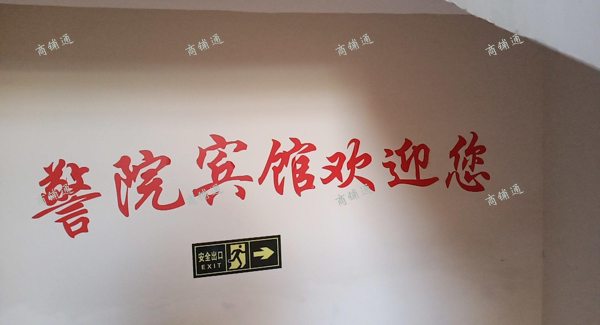 商铺通 商铺通 商铺通 商铺通
警院宾馆欢迎您
商铺通 商铺通 商铺通 商铺通
安全出口
EXIT